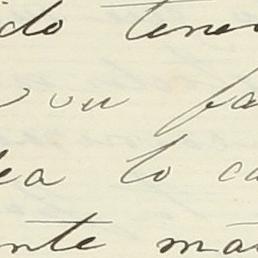 ido tener
fa
ea lo ca
nte ma